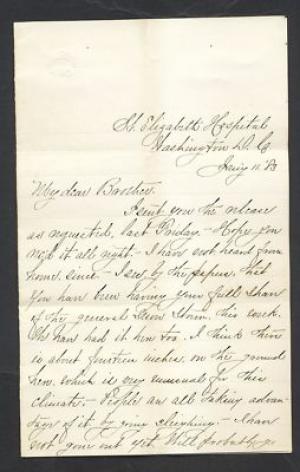 St. Elizabeth Hospital
Washington D. C.
Jany 11 '83
My dear Brother.
I sent you the release
as requested, last Friday. - Hope you
rec'd it all right. - I have not heard from
home since - I see by the papers, that
you have been having your full share
of the general snow storm, this week.
We have had it here too. I think there
is about fourteen inches, on the ground
here. which is very unusual for this
climate. - People are all taking advan-
tage of it, by going sleighing. - I have
not gone out yet. Will probably go